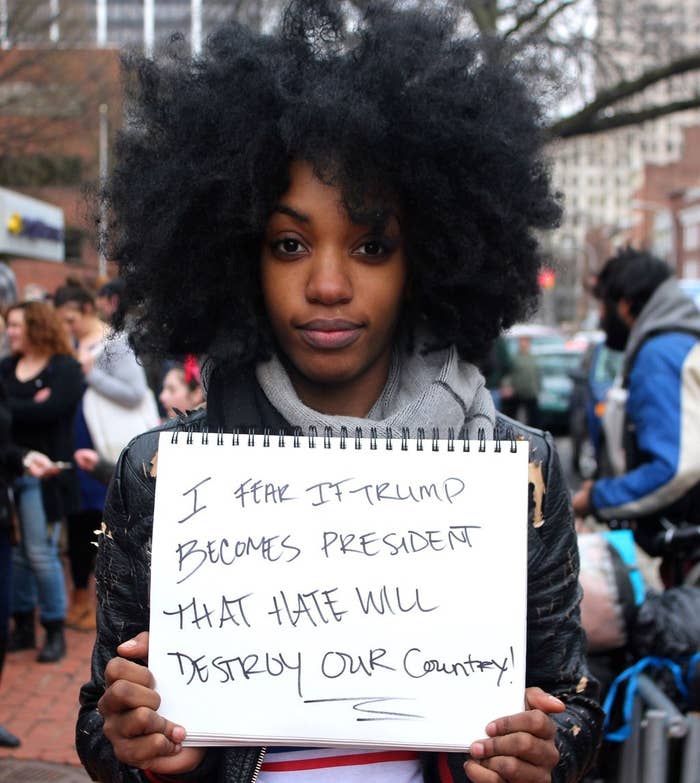 I FEAR IF TRUMP
BECOMES PRESIDENT
THAT HATE WILL
DESTROY OUR Country!